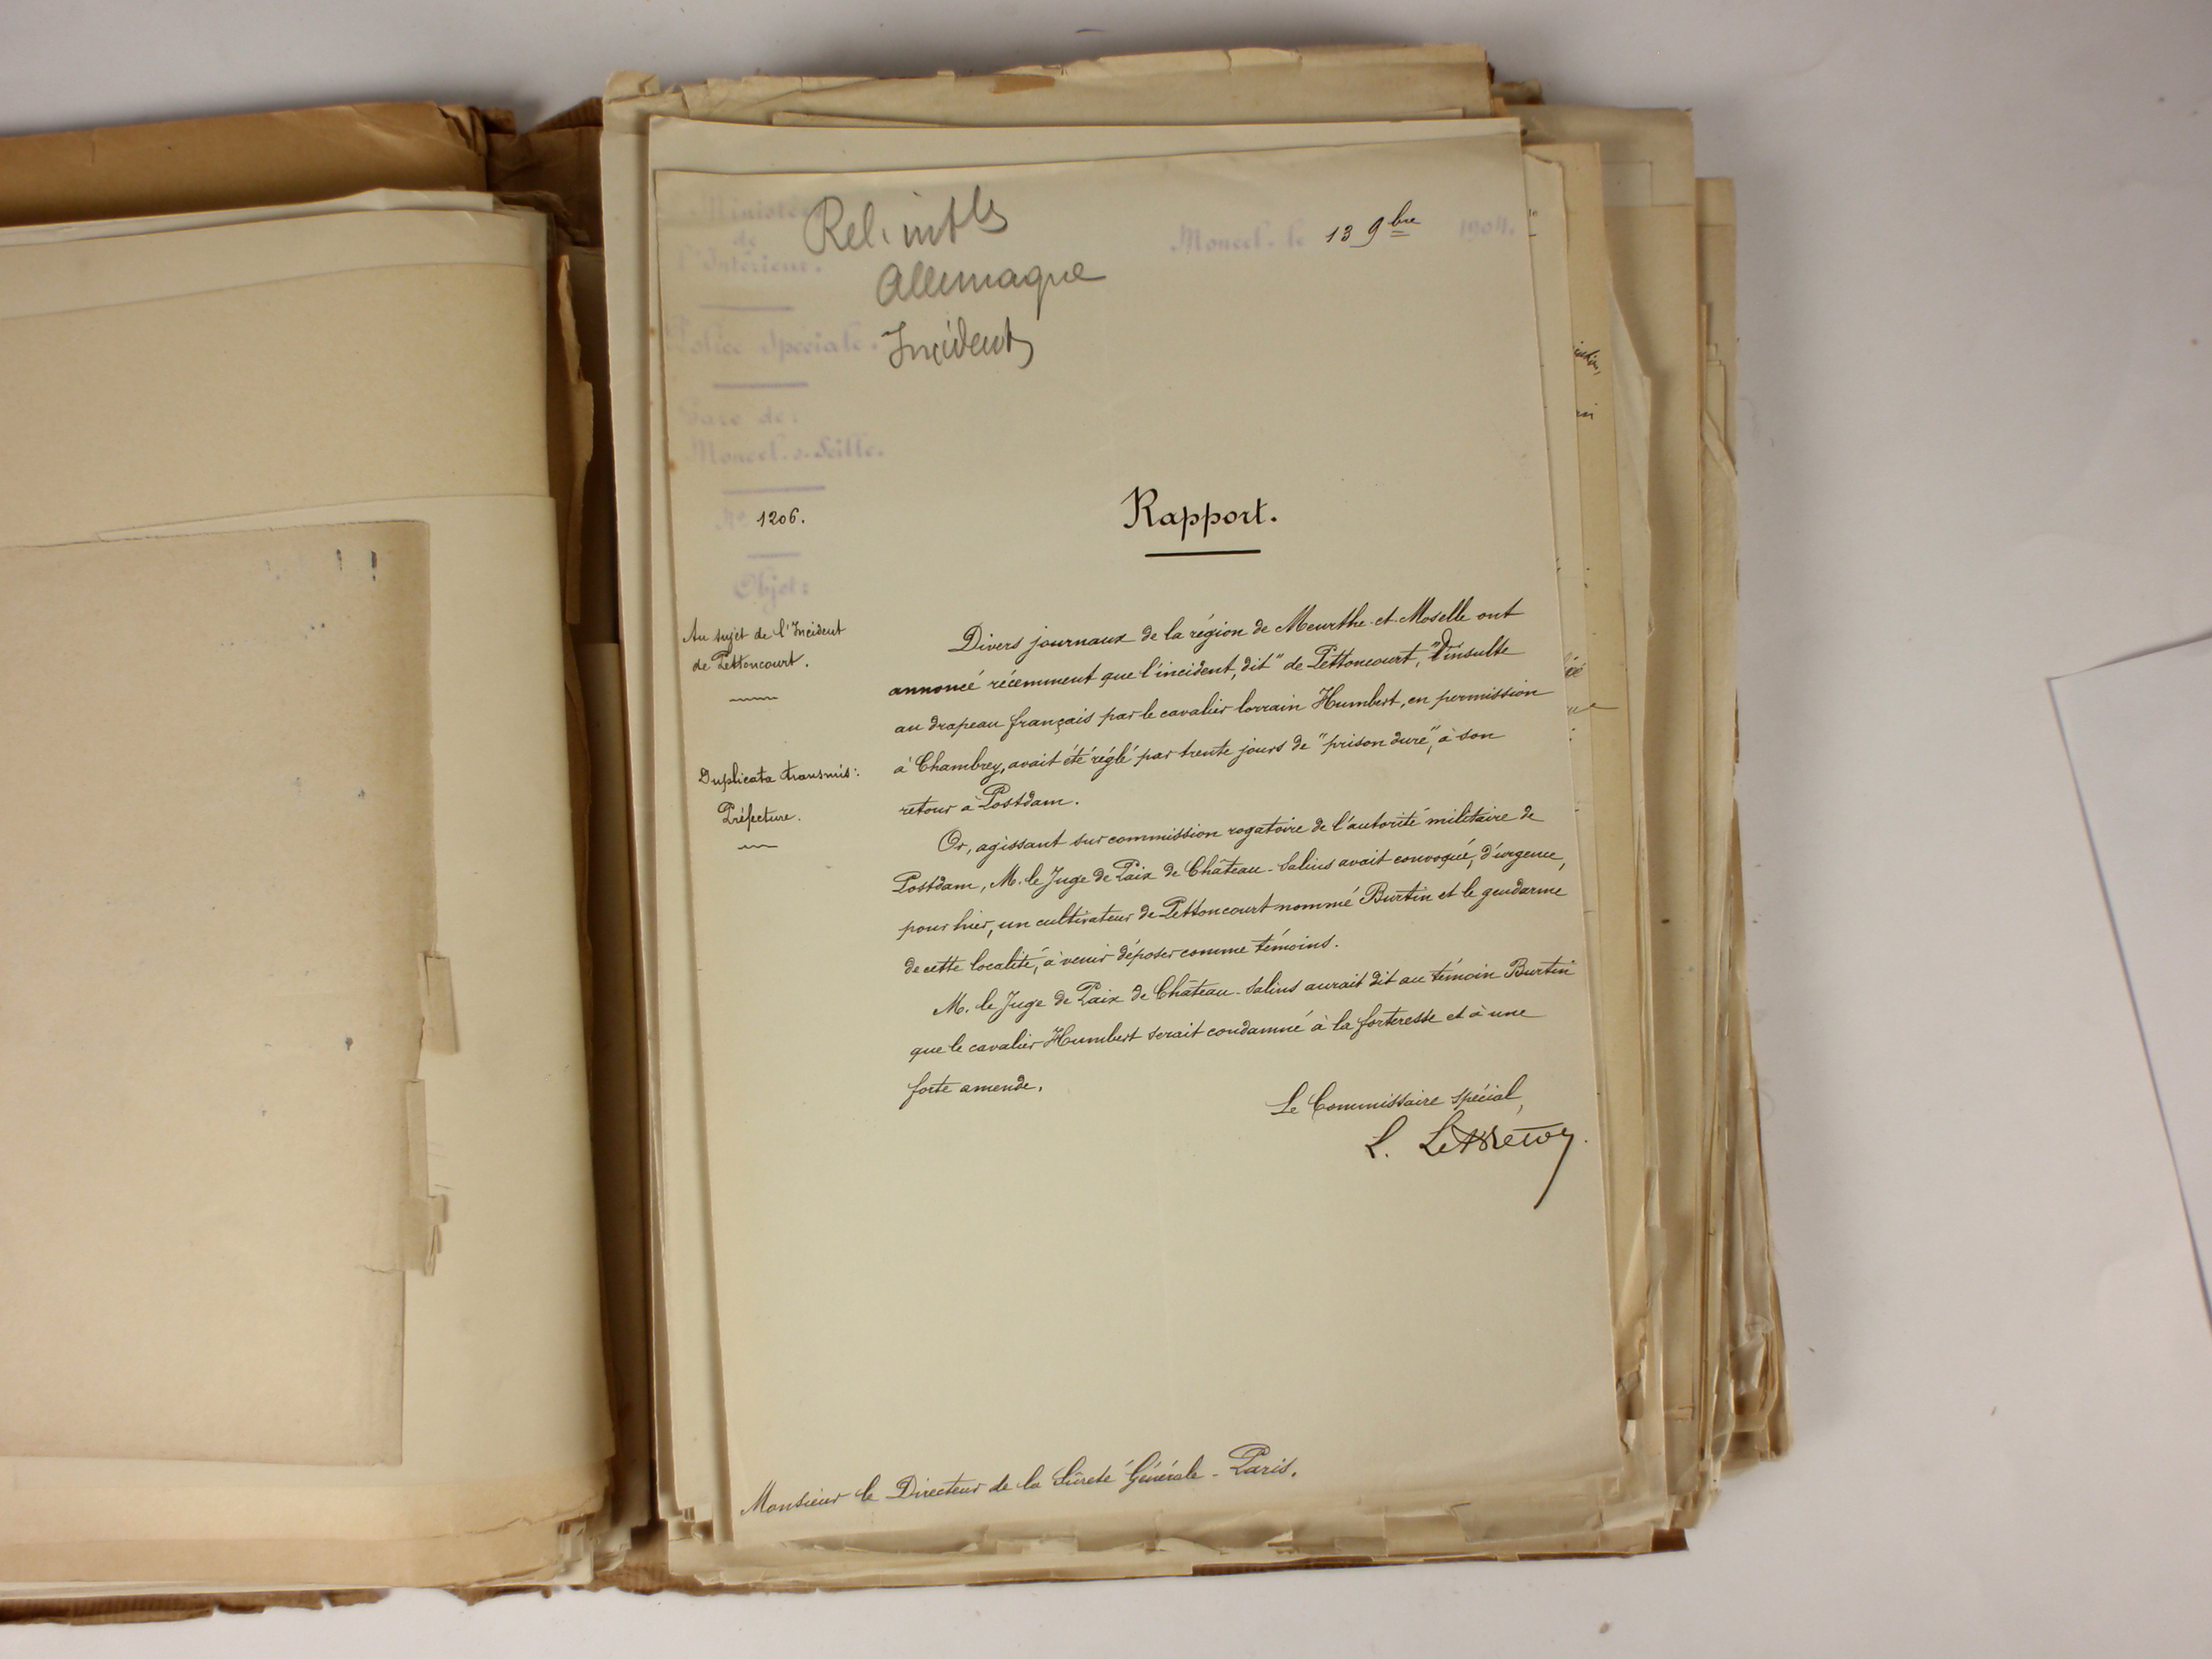 Ministère
de
l'Intérieur.
Police Spéciale.
Gare de:
Moncel-s-Seille.
Nº 1206.
Objet:
Au sujet de l'Incident
de Pettoncourt.
Duplicata transmis:
Préfecture.
Rel. intles
Allemagne
Incidents
Moncel, le 13 9bre 1904.
Rapport.
Divers journaux de la région de Meurthe-et-Moselle ont
annoncé récemment que l'incident, dit "de Pettoncourt", l'insulte
au drapeau français par le cavalier lorrain Humbert, en permission
à Chambrey, avait été réglé par trente jours de "prison dure", à son
retour à Postdam.
Or, agissant sur commission rogatoire de l'autorité militaire de
Postdam, M. le Juge de Paix de Château-Salins avait convoqué, d'urgence,
pour hier, un cultivateur de Pettoncourt nommé Burtin et le gendarme
de cette localité, à venir déposer comme témoins.
M. le Juge de Paix de Château-Salins aurait dit au témoin Burtin
que le cavalier Humbert serait condamné à la forteresse et à une
forte amende.
Le Commissaire spécial,
L.
Monsieur le Directeur de la Sûreté Générale - Paris.